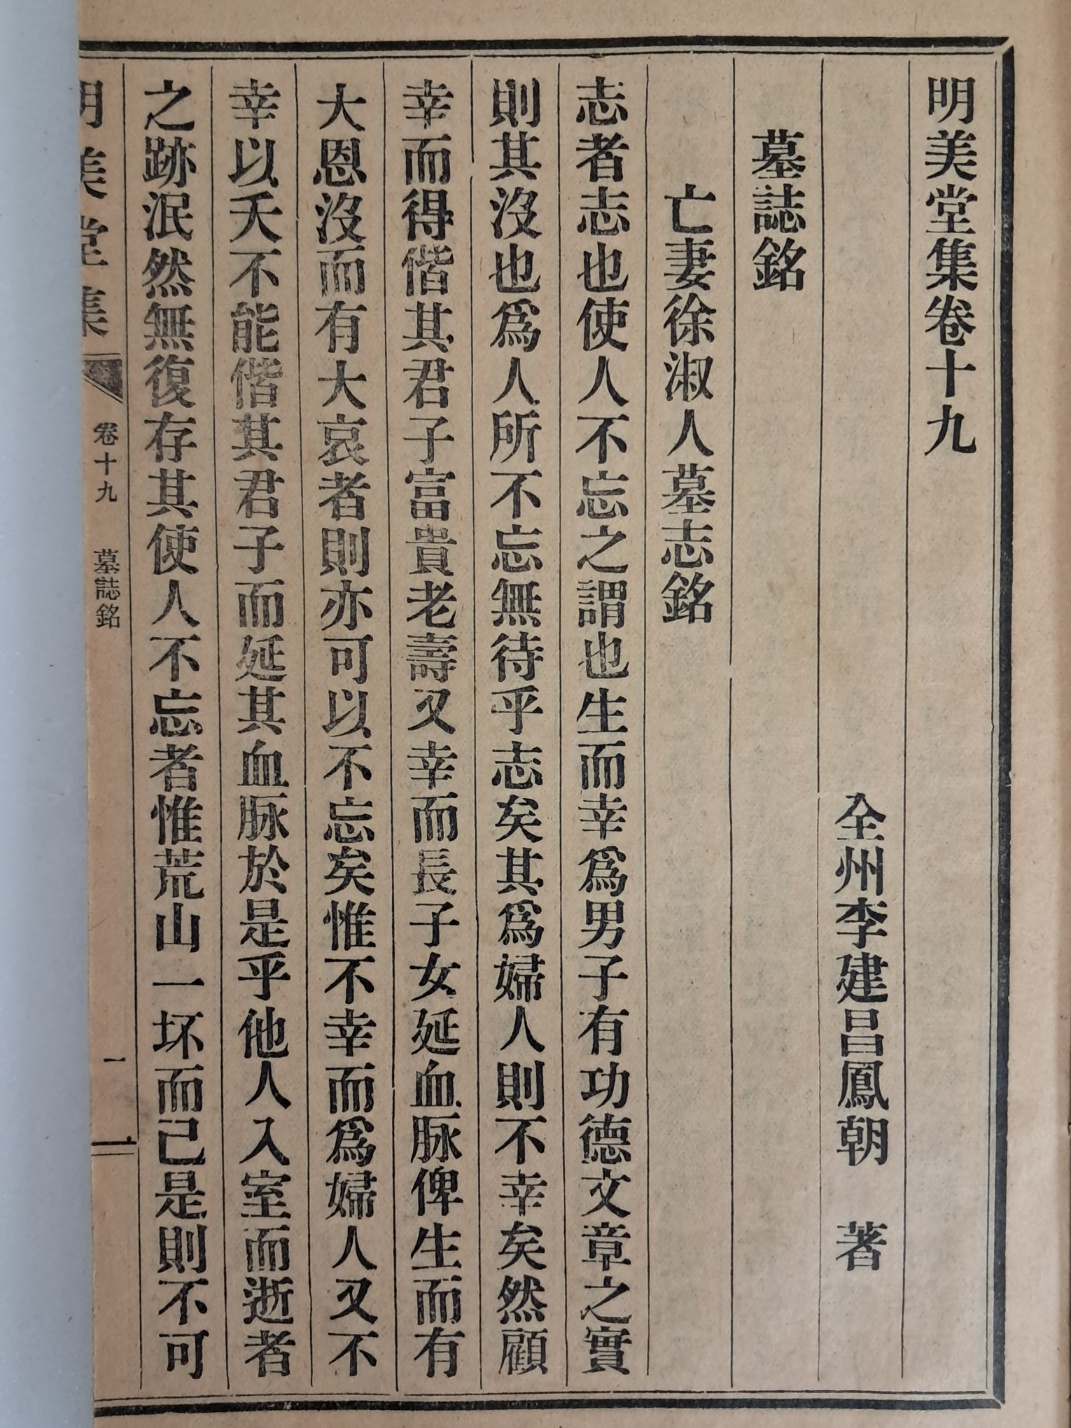 明美堂集卷十九
全州李建昌鳳朝　著
墓誌銘
亡妻徐淑人墓志銘
志者志也使人不忘之謂也生而幸爲男子有功德文章之實
則其沒也爲人所不忘無待乎志矣其爲婦人則不幸矣然顧
幸而得偕其君子富貴老壽又幸而長子女延血脈俾生而有
大恩沒而有大哀者則亦可以不忘矣惟不幸而爲婦人又不
幸以夭不能偕其君子而延其血脈於是乎他人入室而逝者
之跡泯然無復存其使人不忘者惟荒山一坏而已是則不可
明美堂集　卷十九　墓誌銘　一